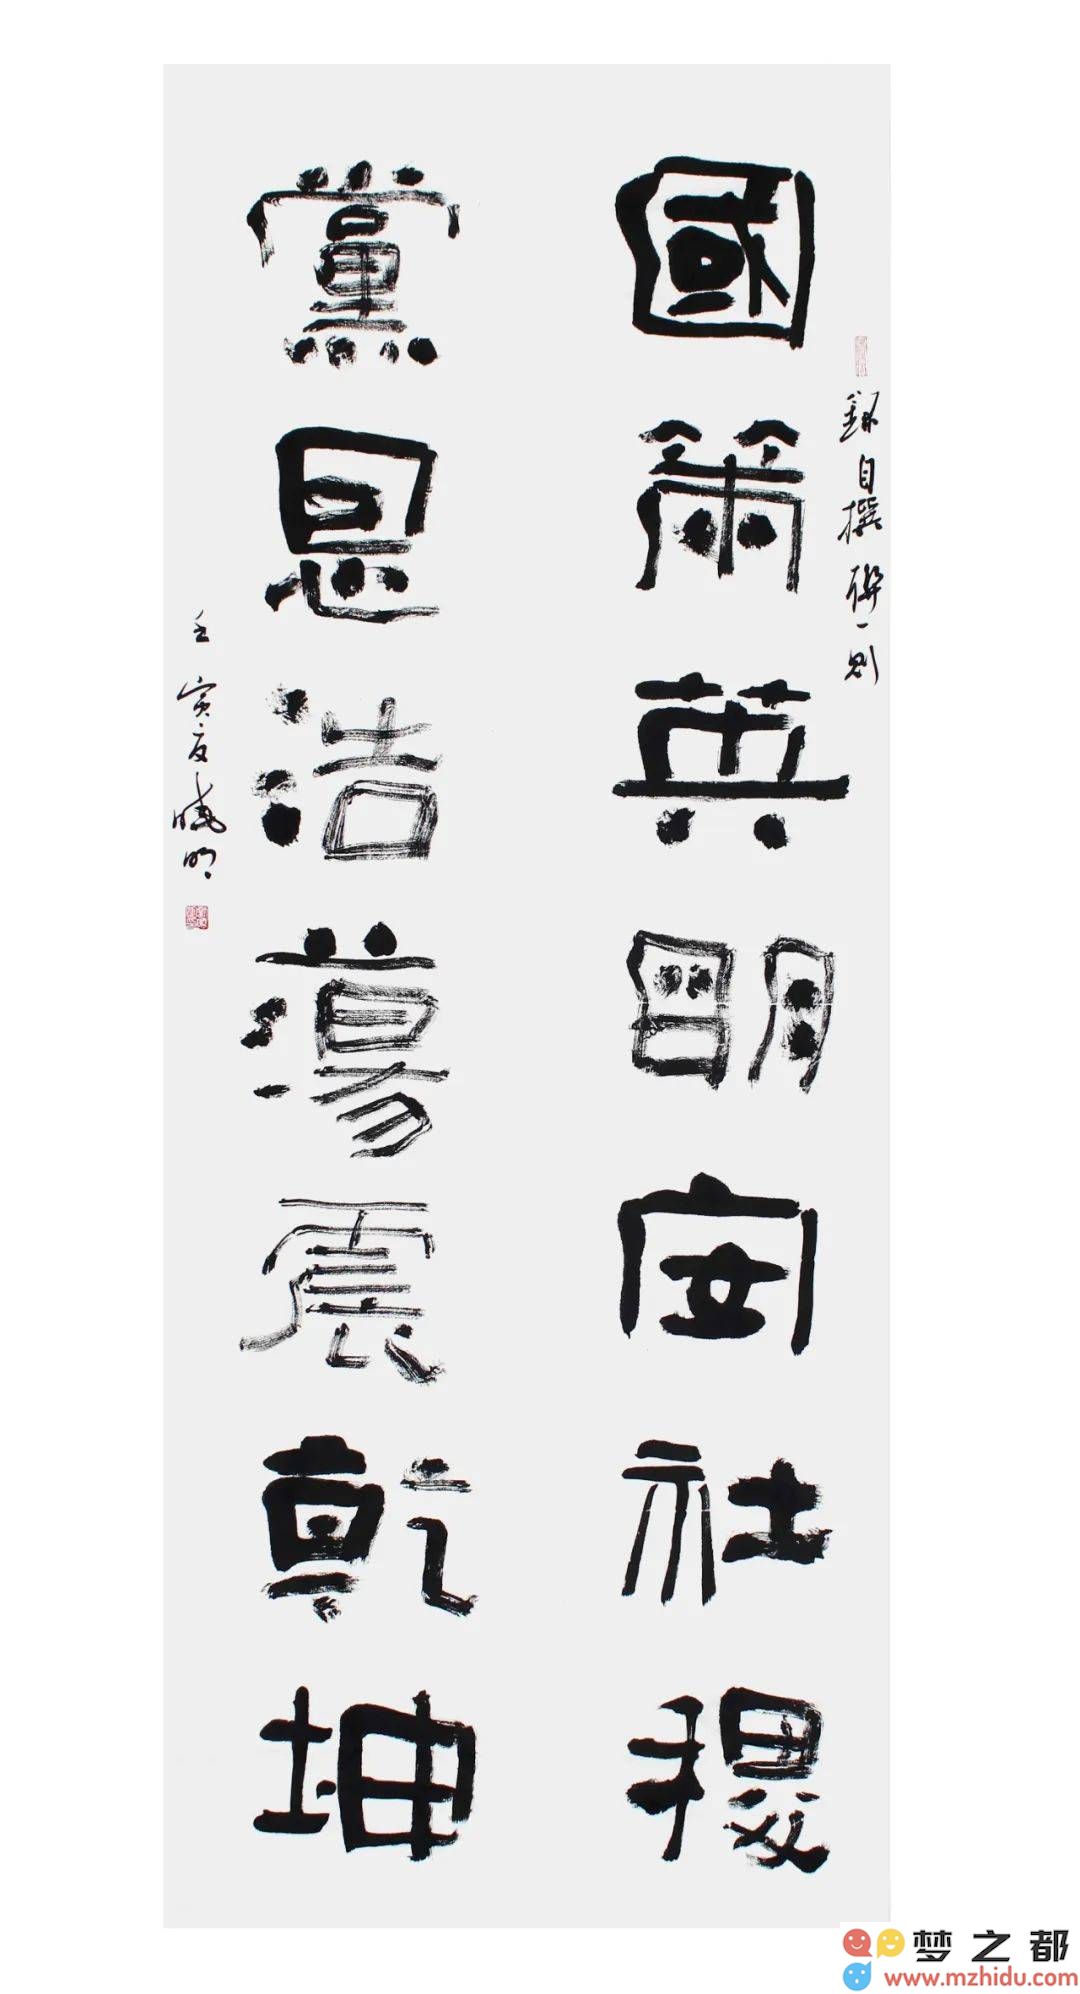 國策英明安社稷
黨恩浩蕩震乾坤
錄自撰聯一則
壬寅夏曉明
梦之都
www.mzhidu.com